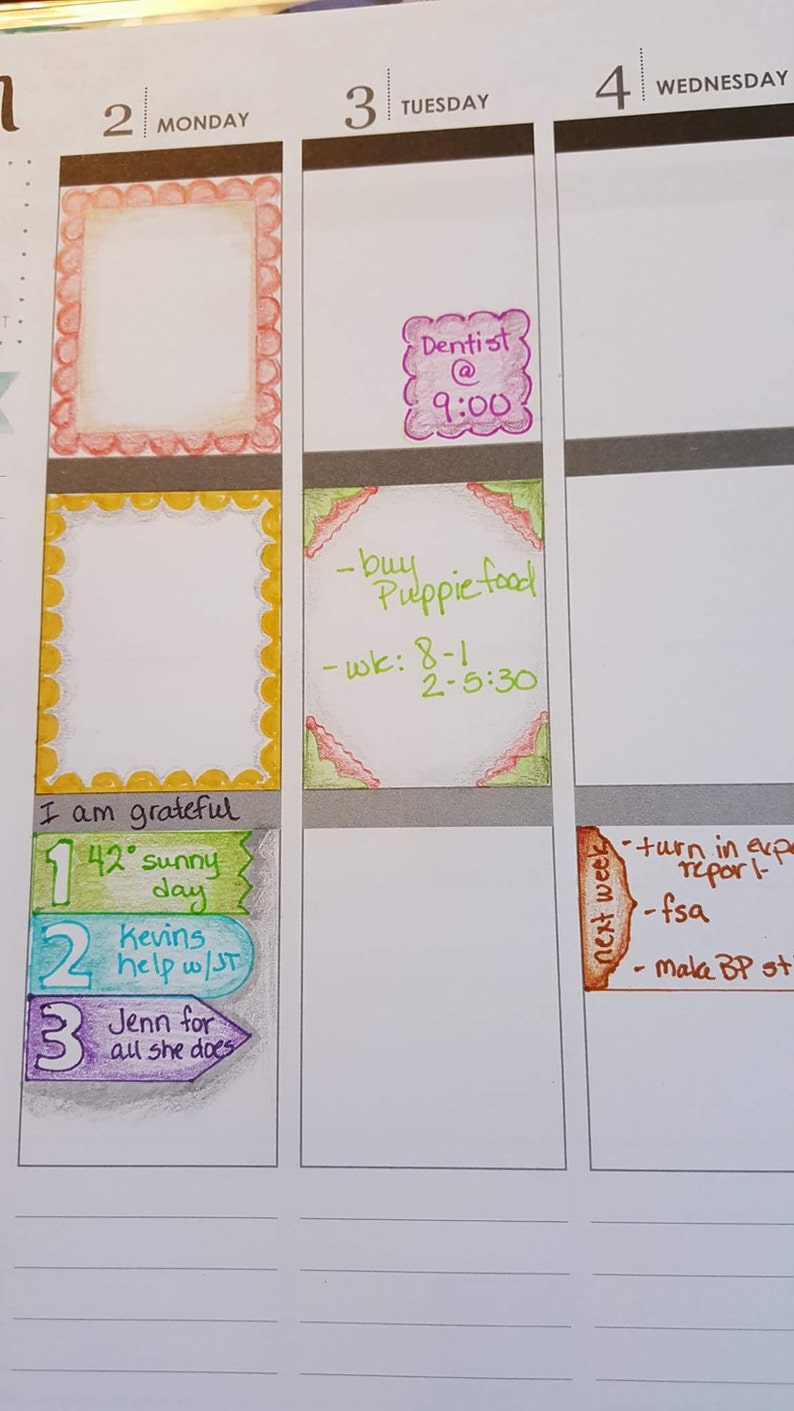 2 MONDAY
3 TUESDAY
4 WEDNESDAY
Dentist
@
9:00
- buy
Puppie food
- wk: 8-1
2-5:30
I am grateful
1 42° sunny
day
2 Kevins
help w/JT
3 Jenn for
all she does
next week
- turn in
report
- fsa
- make BP